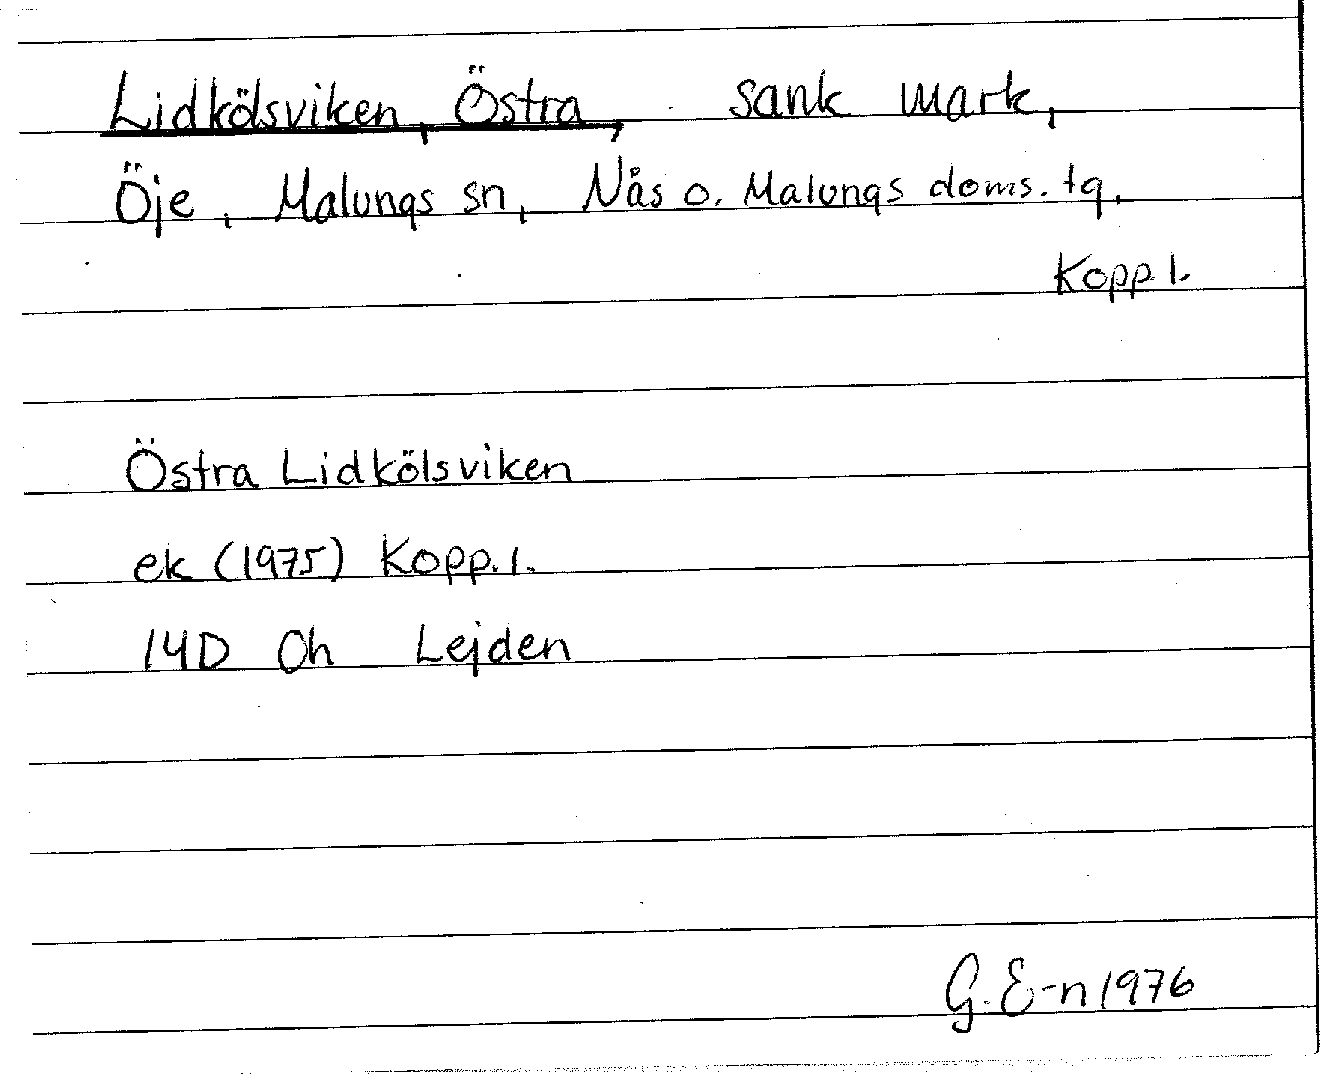 Lidkölsviken, Östra, sank mark,
Öje, Malungs sn, Nås o. Malungs doms. tg.
Kopp l.
Östra Lidkölsviken
ek (1975) Kopp. l.
14D Oh Lejden
G. E-n 1976